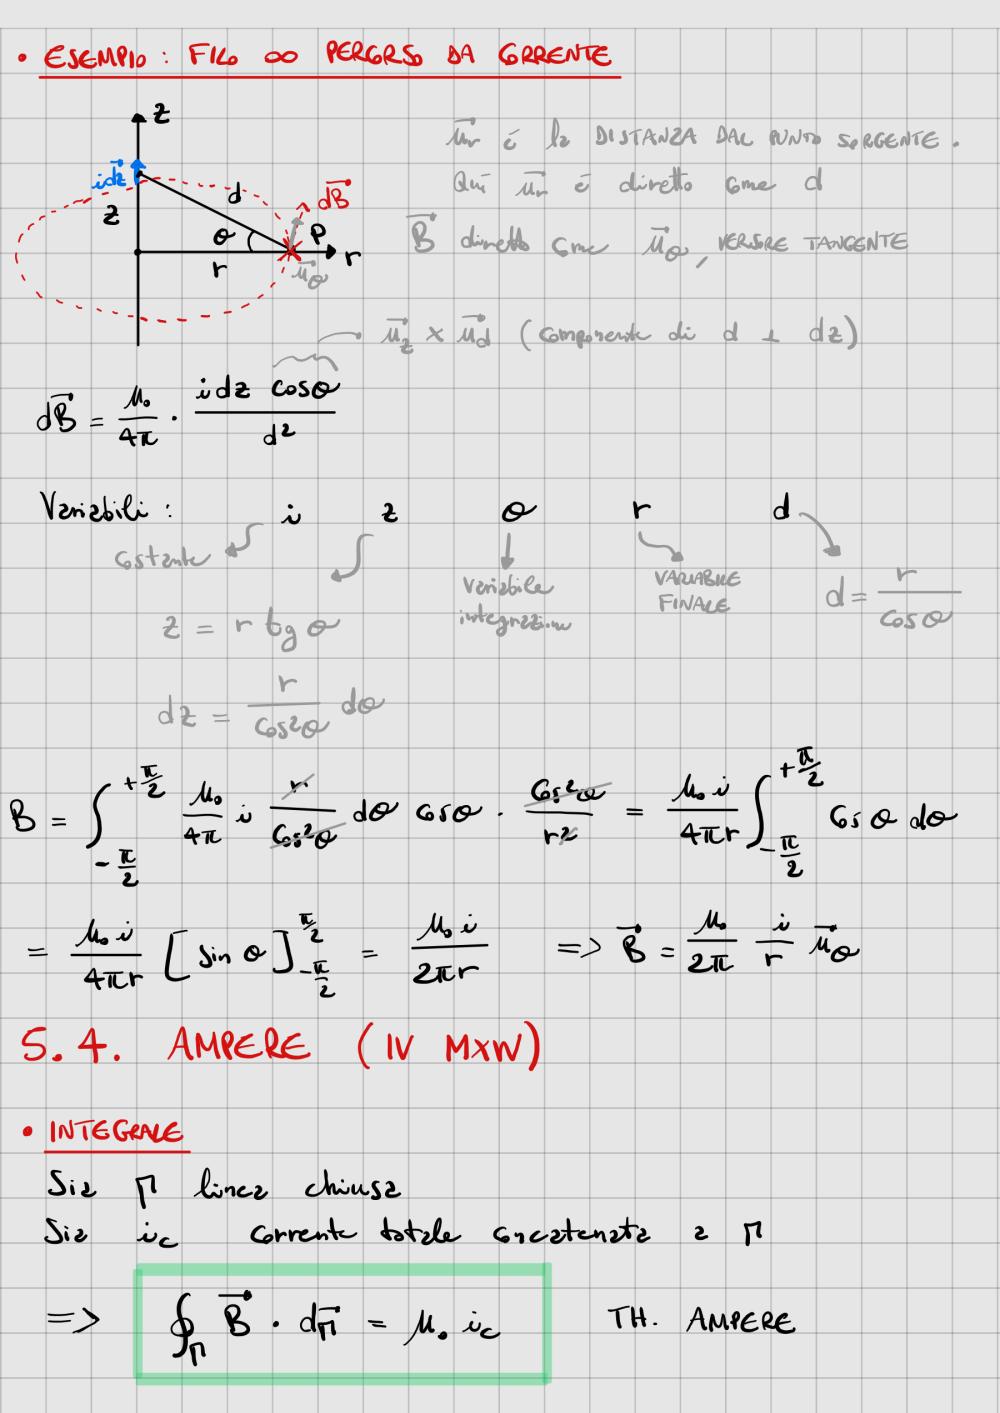 • ESEMPIO: FILO ∞ PERCORSO DA CORRENTE
z
u⃗r é la DISTANZA DAL PUNTO SORGENTE.
idz⃗
d
dB⃗
Quì u⃗r è diretto come d
z
θ
P
B⃗ diretto come u⃗θ, VERSORE TANGENTE
r
r
u⃗θ
u⃗z × u⃗d (componente di d ⊥ dz)
dB⃗ = μ₀/4π · i dz cosθ/d²
Variabili: i z θ r d
costante
z = r tg θ
variabile integrazione
VARIABILE FINALE
d = r/cosθ
dz = r/cos²θ dθ
B = ∫_{-π/2}^{+π/2} μ₀/4π i r/cos²θ dθ cosθ · cos²θ/r² = μ₀ i/4πr ∫_{-π/2}^{+π/2} cosθ dθ
= μ₀ i/4πr [sin θ]_{-π/2}^{π/2} = μ₀ i/2πr => B⃗ = μ₀/2π i/r u⃗θ
5.4. AMPERE (IV MXW)
• INTEGRALE
Sia Γ linea chiusa
Sia ic corrente totale concatenata a Γ
=> ∮_Γ B⃗ · dΓ⃗ = μ₀ ic TH. AMPERE